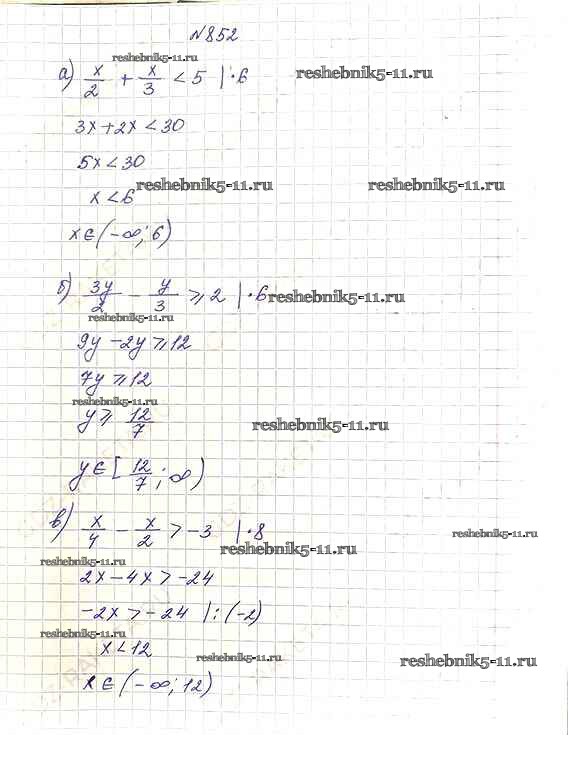 №852
reshebnik5-11.ru
а) x/2 + x/3 < 5 | ·6 reshebnik5-11.ru
3x+2x<30
5x<30
x<6 reshebnik5-11.ru reshebnik5-11.ru
x∈(-∞; 6)
б) 3y/2 - y/3 ⩾ 2 | ·6 reshebnik5-11.ru
reshebnik5-11.ru
9y-2y⩾12
7y⩾12
reshebnik5-11.ru
y⩾ 12/7 reshebnik5-11.ru
y∈[12/7; ∞)
в) x/4 - x/2 > -3 | ·8 reshebnik5-11.ru
reshebnik5-11.ru
reshebnik5-11.ru
2x-4x>-24
-2x>-24 |:(-2)
reshebnik5-11.ru
x<12
reshebnik5-11.ru reshebnik5-11.ru
x∈(-∞; 12)